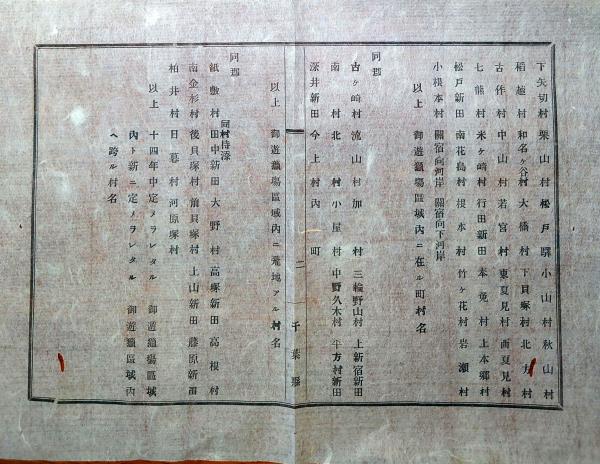 下矢切村 栗山村 松戸驛 小山村 秋山村
稻越村 和名ヶ谷村 大橋村 下貝塚村 北方村
古作村 中山村 若宮村 東夏見村 西夏見村
七熊村 米ヶ崎村 行田新田 本 村 上本郷村
松戸新田 南花島村 根本村 竹ヶ花村 岩瀬村
小根本村 關宿向河岸 關宿向下河岸
以上 御遊獵場區域內ニ在ル町村名
同郡
古ヶ崎村 流山村 加村 三輪野山村 上新宿新田
南村 北村 小屋村 中野久木村 平方村新田
深井新田 今上村 內町
以上 御遊獵場區域內ニ飛地アル村名
二
千葉縣
同郡
紙敷村 同村持添 田中新田 大野村 高塚新田 高根村
南金杉村 後貝塚村 前貝塚村 上山新田 藤原新田
柏井村 日暮村 河原塚村
以上 十四年中定メラレタル 御遊獵區域
內ト新ニ定メラレタル 御遊獵區域內
ヘ跨ル村名